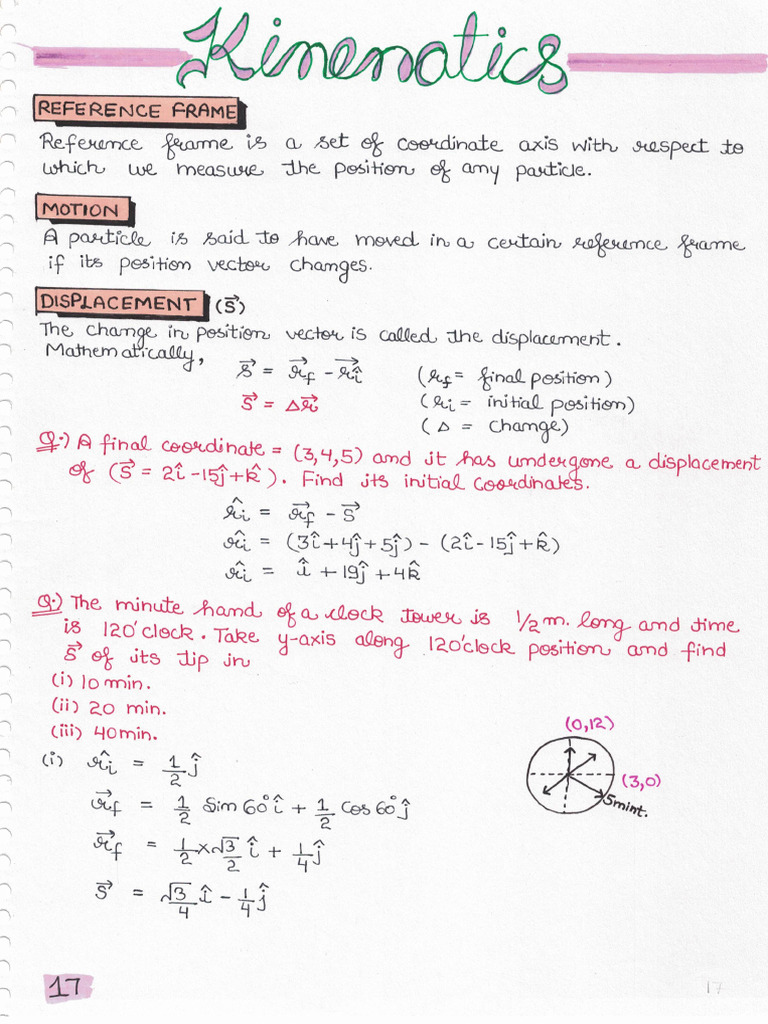 Kinenatics
REFERENCE FRAME
Reference frame is a set of coordinate axis with respect to
which we measure the position of any particle.
MOTION
A particle is said to have moved in a certain reference frame
if its position vector changes.
DISPLACEMENT (s⃗)
The change in position vector is called the displacement.
Mathematically,
s⃗ = r⃗f - r⃗i (rf = final position)
s⃗ = Δr⃗ (ri = initial position)
(Δ = change)
Q:) A final coordinate = (3,4,5) and it has undergone a displacement
of (s⃗ = 2î -15ĵ + k̂). Find its initial coordinates.
r̂i = r⃗f - s⃗
r̂i = (3î + 4ĵ + 5ĵ) - (2î - 15ĵ + k̂)
r̂i = î + 19ĵ + 4k̂
Q:) The minute hand of a clock tower is 1/2 m. long and time
is 12 O'clock. Take y-axis along 12 O'clock position and find
s⃗ of its tip in
(i) 10 min.
(ii) 20 min.
(iii) 40 min.
(i) r̂i = 1/2 ĵ
r⃗f = 1/2 Sim 60° î + 1/2 Cos 60° ĵ
r⃗f = 1/2 × √3/2 î + 1/4 ĵ
s⃗ = √3/4 î - 1/4 ĵ
(0,12)
(3,0)
5mint.
17
17